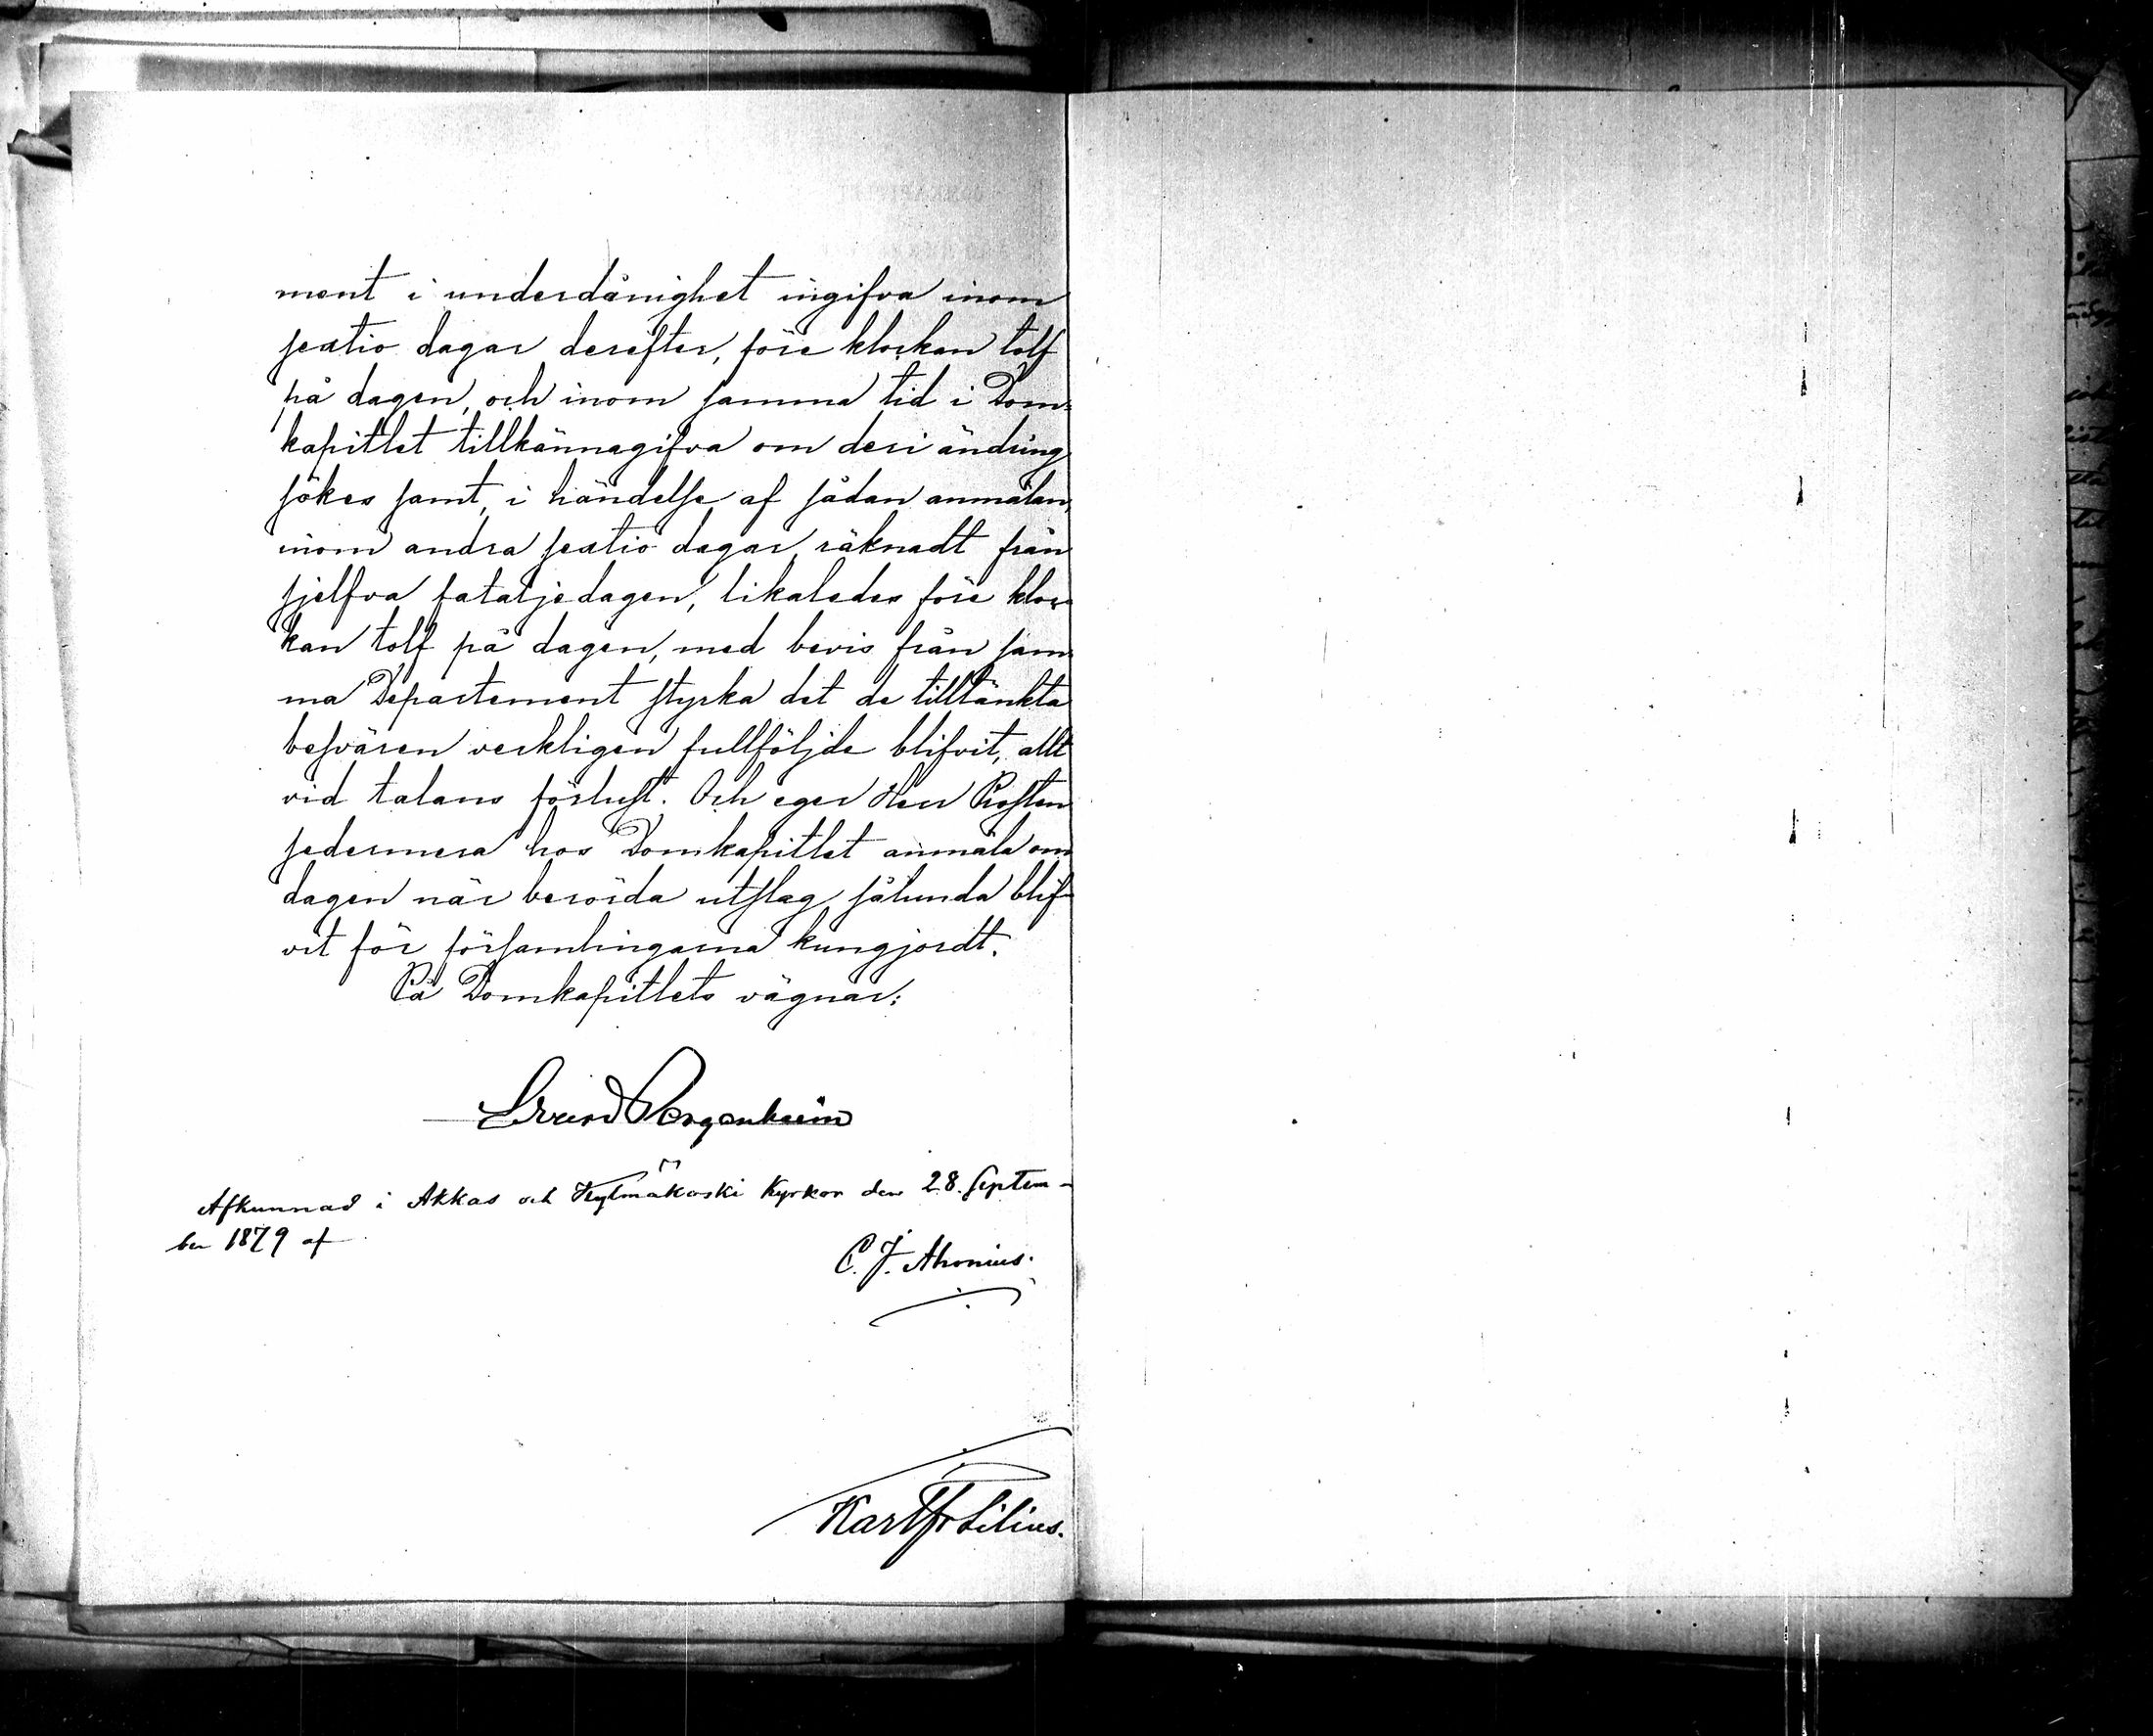 ment i underdånighet ingifva inom
sextio dagar derefter, före klockan tolf
på dagen, och inom samma tid i Dom-
kapitlet tillkännagifva om deri ändring
sökes samt, i händelse af sådan anmälan,
inom andra sextio dagar, räknadt från
sjelfva fataljedagen, likaledes före kloc-
kan tolf på dagen, med bevis från sam-
ma Departement styrka det de tilltänkta
besvären verkligen fullföljde blifvit, allt
vid talans förlust. Och eger Herr Prosten
sedermera hos Domkapitlet anmäla om
dagen när berörda utslag sålunda blif-
vit för församlingarna kungjordt.
På Domkapitlets vägnar:
Bergenheim
Afkunnad i Akkas och Kylmäkoski Kyrkor den 28. Septem-
ber 1879 af
C. J. Ahonius.
Karl Fr Lilius.